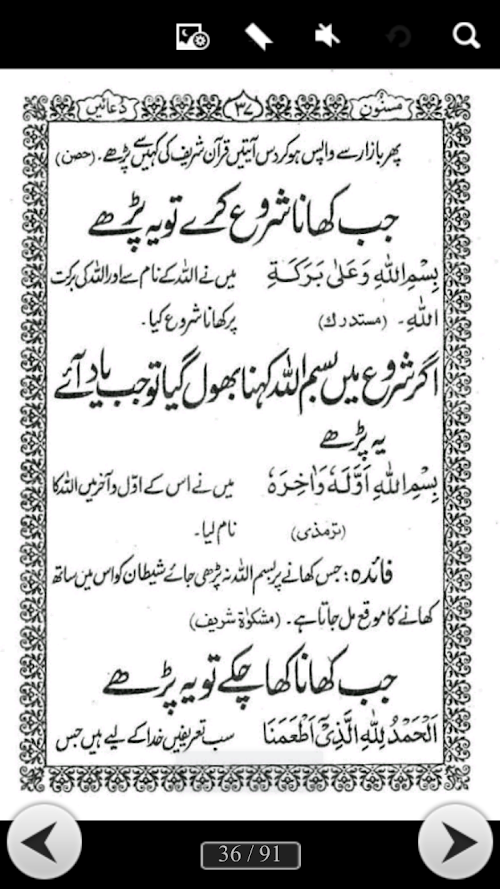 مسنون ۳۷ دعائیں
پھر بازار سے واپس ہو کر دس آیتیں قرآن شریف کی کہیں سے پڑھے۔ (حصن)
جب کھانا شروع کرے تو یہ پڑھے
بِسْمِ اللّٰهِ وَعَلٰی بَرَکَةِ میں نے اللہ کے نام سے اور اللہ کی برکت
اللّٰهِ۔ (مستدرك) پر کھانا شروع کیا۔
اگر شروع میں بسم اللہ کہنا بھول گیا تو جب یاد آئے
یہ پڑھے
بِسْمِ اللّٰهِ اَوَّلَهٗ وَاٰخِرَهٗ میں نے اس کے اوّل و آخر میں اللہ کا
(ترمذی) نام لیا۔
فائدہ: جس کھانے پر بسم اللہ نہ پڑھی جائے شیطان کو اس میں ساتھ
کھانے کا موقع مل جاتا ہے۔ (مشکوٰۃ شریف)
جب کھانا کھا چکے تو یہ پڑھے
اَلْحَمْدُ لِلّٰهِ الَّذِیْٓ اَطْعَمَنَا سب تعریفیں خدا کے لیے ہیں جس
36 / 91